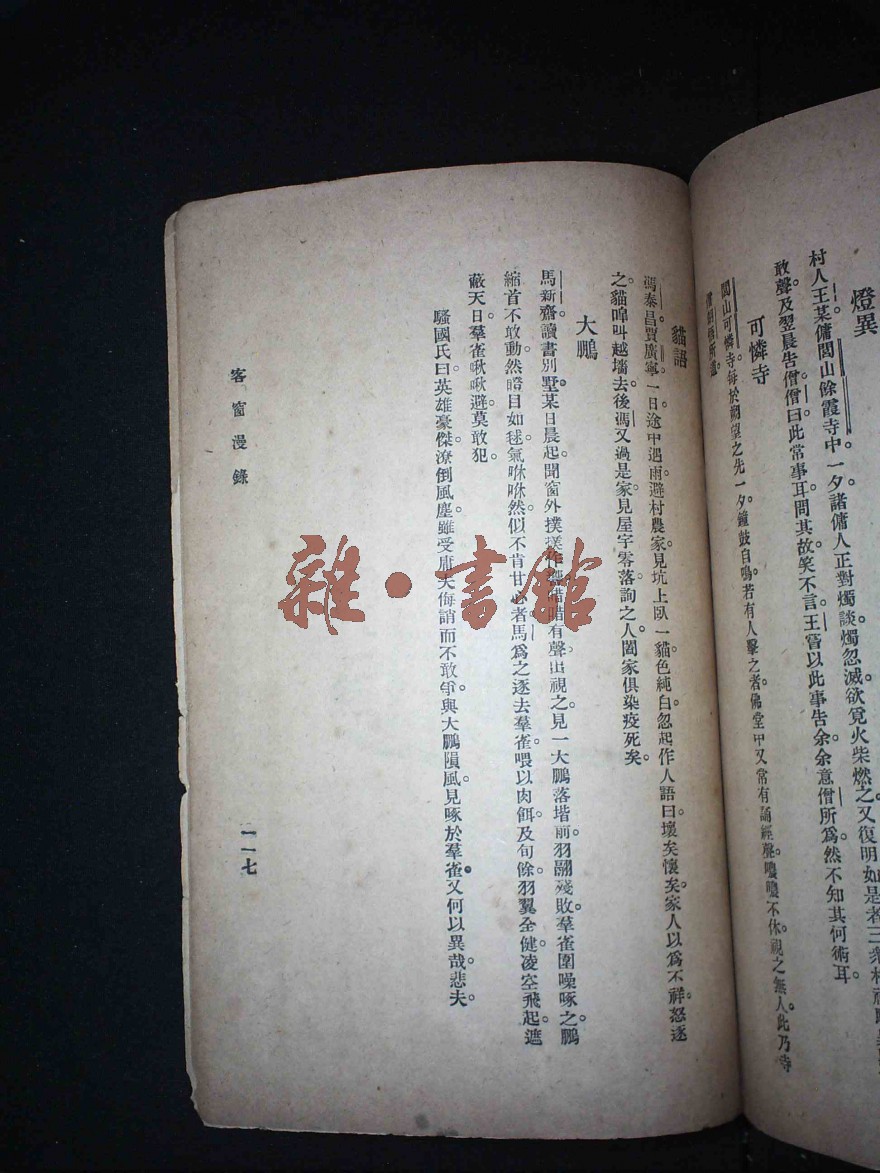 燈異
村人王某傭閭山餘霞寺中。一夕諸傭人正對燭談。燭忽滅。欲覓火柴燃之。又復明。如是者三。衆
敢聲。及翌晨告僧。僧曰。此常事耳。問其故。笑不言。王嘗以此事告余。余意僧所爲。然不知其何術耳。
可憐寺
閭山可憐寺。每於朔望之先一夕。鐘鼓自鳴。若有人擊之者。佛堂中又常有誦經聲。嚶嚶不休。視之無人。此乃寺
貓語
馮泰昌賈廣寧。一日途中遇雨。避村農家。見坑上臥一貓。色純白。忽起作人語曰。壞矣懷矣。家人以爲不祥。怒逐
之。貓嘷叫越墻去。後馮又過是家。見屋宇零落。詢之人。闔家俱染疫死矣。
大鵬
馬新齋讀書別墅。某日晨起。聞窗外撲撲作響。唶唶有聲。出視之。見一大鵬落堦前。羽翮殘敗。羣雀圍噪啄之。鵬
縮首不敢動。然瞪目如毬。氣咻咻然。似不肯甘心者。馬爲之逐去羣雀。喂以肉餌。及旬餘。羽翼全健。凌空飛起。遮
蔽天日。羣雀啾啾避。莫敢犯。
騷國氏曰。英雄豪傑。潦倒風塵。雖受庸夫侮誚而不敢爭。與大鵬隕風。見啄於羣雀。又何以異哉。悲夫。
客窗漫錄
一一七
雜·書館